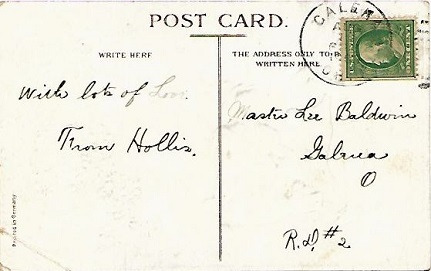 POST CARD.
WRITE HERE
THE ADDRESS ONLY TO BE
WRITTEN HERE
With lots of Love.
From Hollis.
Master Lee Baldwin
Galena
O
R.D. #2
Printed in Germany
GALENA